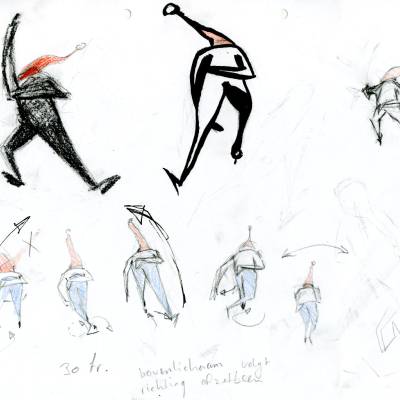 30 fr.
bovenlichaam volgt
richting afzetbeen